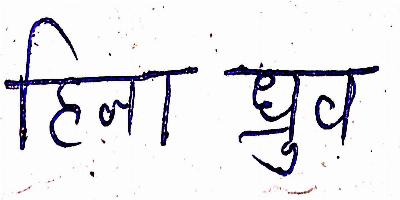 हिना ध्रुव